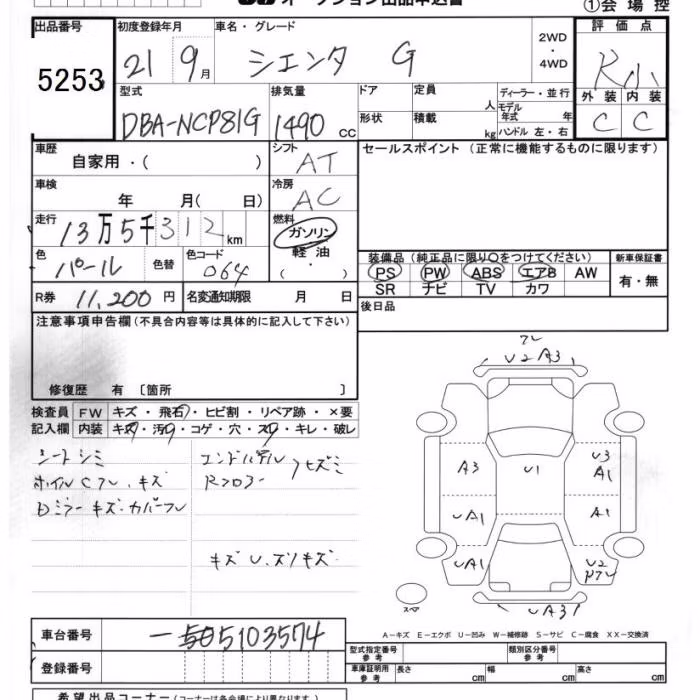 オークション出品申込書
①会場控
出品番号 初度登録年月 車名・グレード 評価点
5253 21 9月 シエンタ G 2WD・4WD R小
型式 排気量 ドア 定員 ディーラー・並行 外装 内装
DBA-NCP81G 1490 CC 人 モデル年式 年 C C
形状 積載 kg ハンドル 左・右
車歴 シフト セールスポイント(正常に機能するものに限ります)
自家用・( ) AT
車検 冷房
年 月( 日) AC
走行 燃料
13万5千312km ガソリン
軽油
・( )
色 色替 色コード 装備品(純正品に限り○をつけてください) 新車保証書
パール 064 PS PW ABS エアB AW 有・無
SR ナビ TV カワ
R券 11,200円 名変通知期限 月 日 後日品
注意事項申告欄(不具合内容等は具体的に記入して下さい)
修復歴 有 〔箇所 〕
検査員 FW キズ・飛石・ヒビ割・リペア跡・×要
記入欄 内装 キズ・汚・コゲ・穴・スレ・キレ・破レ
シートシミ エンドパネル
ホイルCフレ、キズ Rフロアー
Dミラーキズ・カバーワレ
キズU、スリキズ
U2 A3
A3 U1 U3 A1
UA1 A1
UA1 U2
スペア UA3
A-キズ E-エクボ U-凹み W-補修跡 S-サビ C-腐食 XX-交換済
車台番号 5103574
型式指定番号 参考 類別区分番号 参考
登録番号 車庫証明用 参考 長さ cm 幅 cm 高さ cm
希望出品コーナー(コーナーは各会場により異なります)